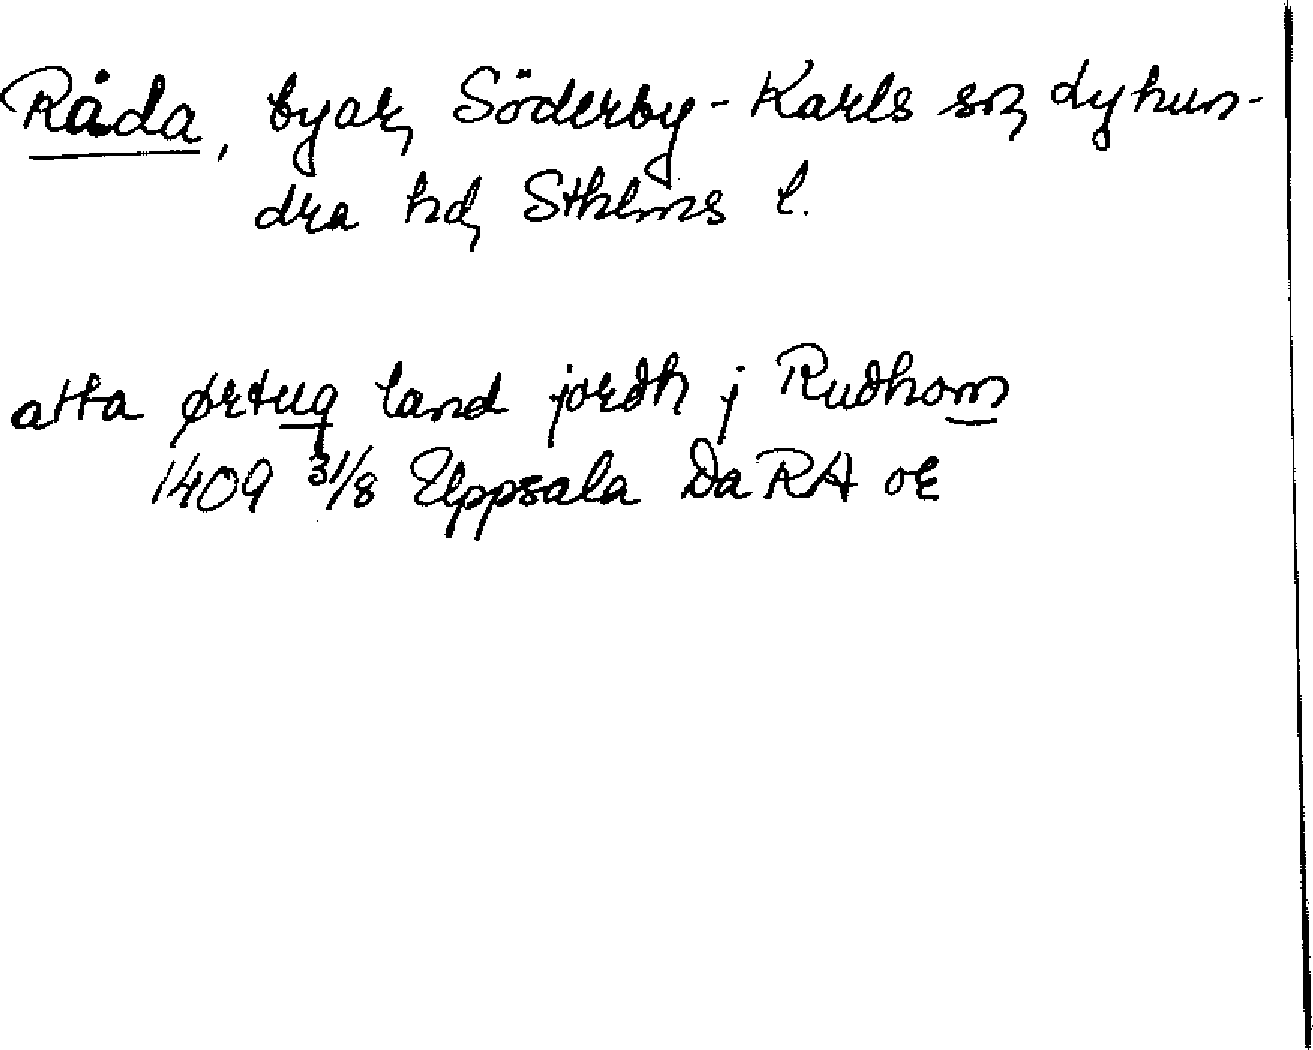 Råda, byar, Söderby-Karls sn, Lyhun-
dra hd, Sthlms l.
atta ørtug land jordh j Rudhom
1409 31/8 Uppsala Da RA or